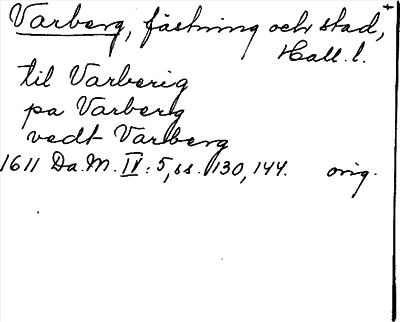 Varberg, fästning och stad,
Hall. l.
til Varberig
pa Varberg
vedt Varberg
1611 Da. M. IV: 5, ss. 130, 144. orig.